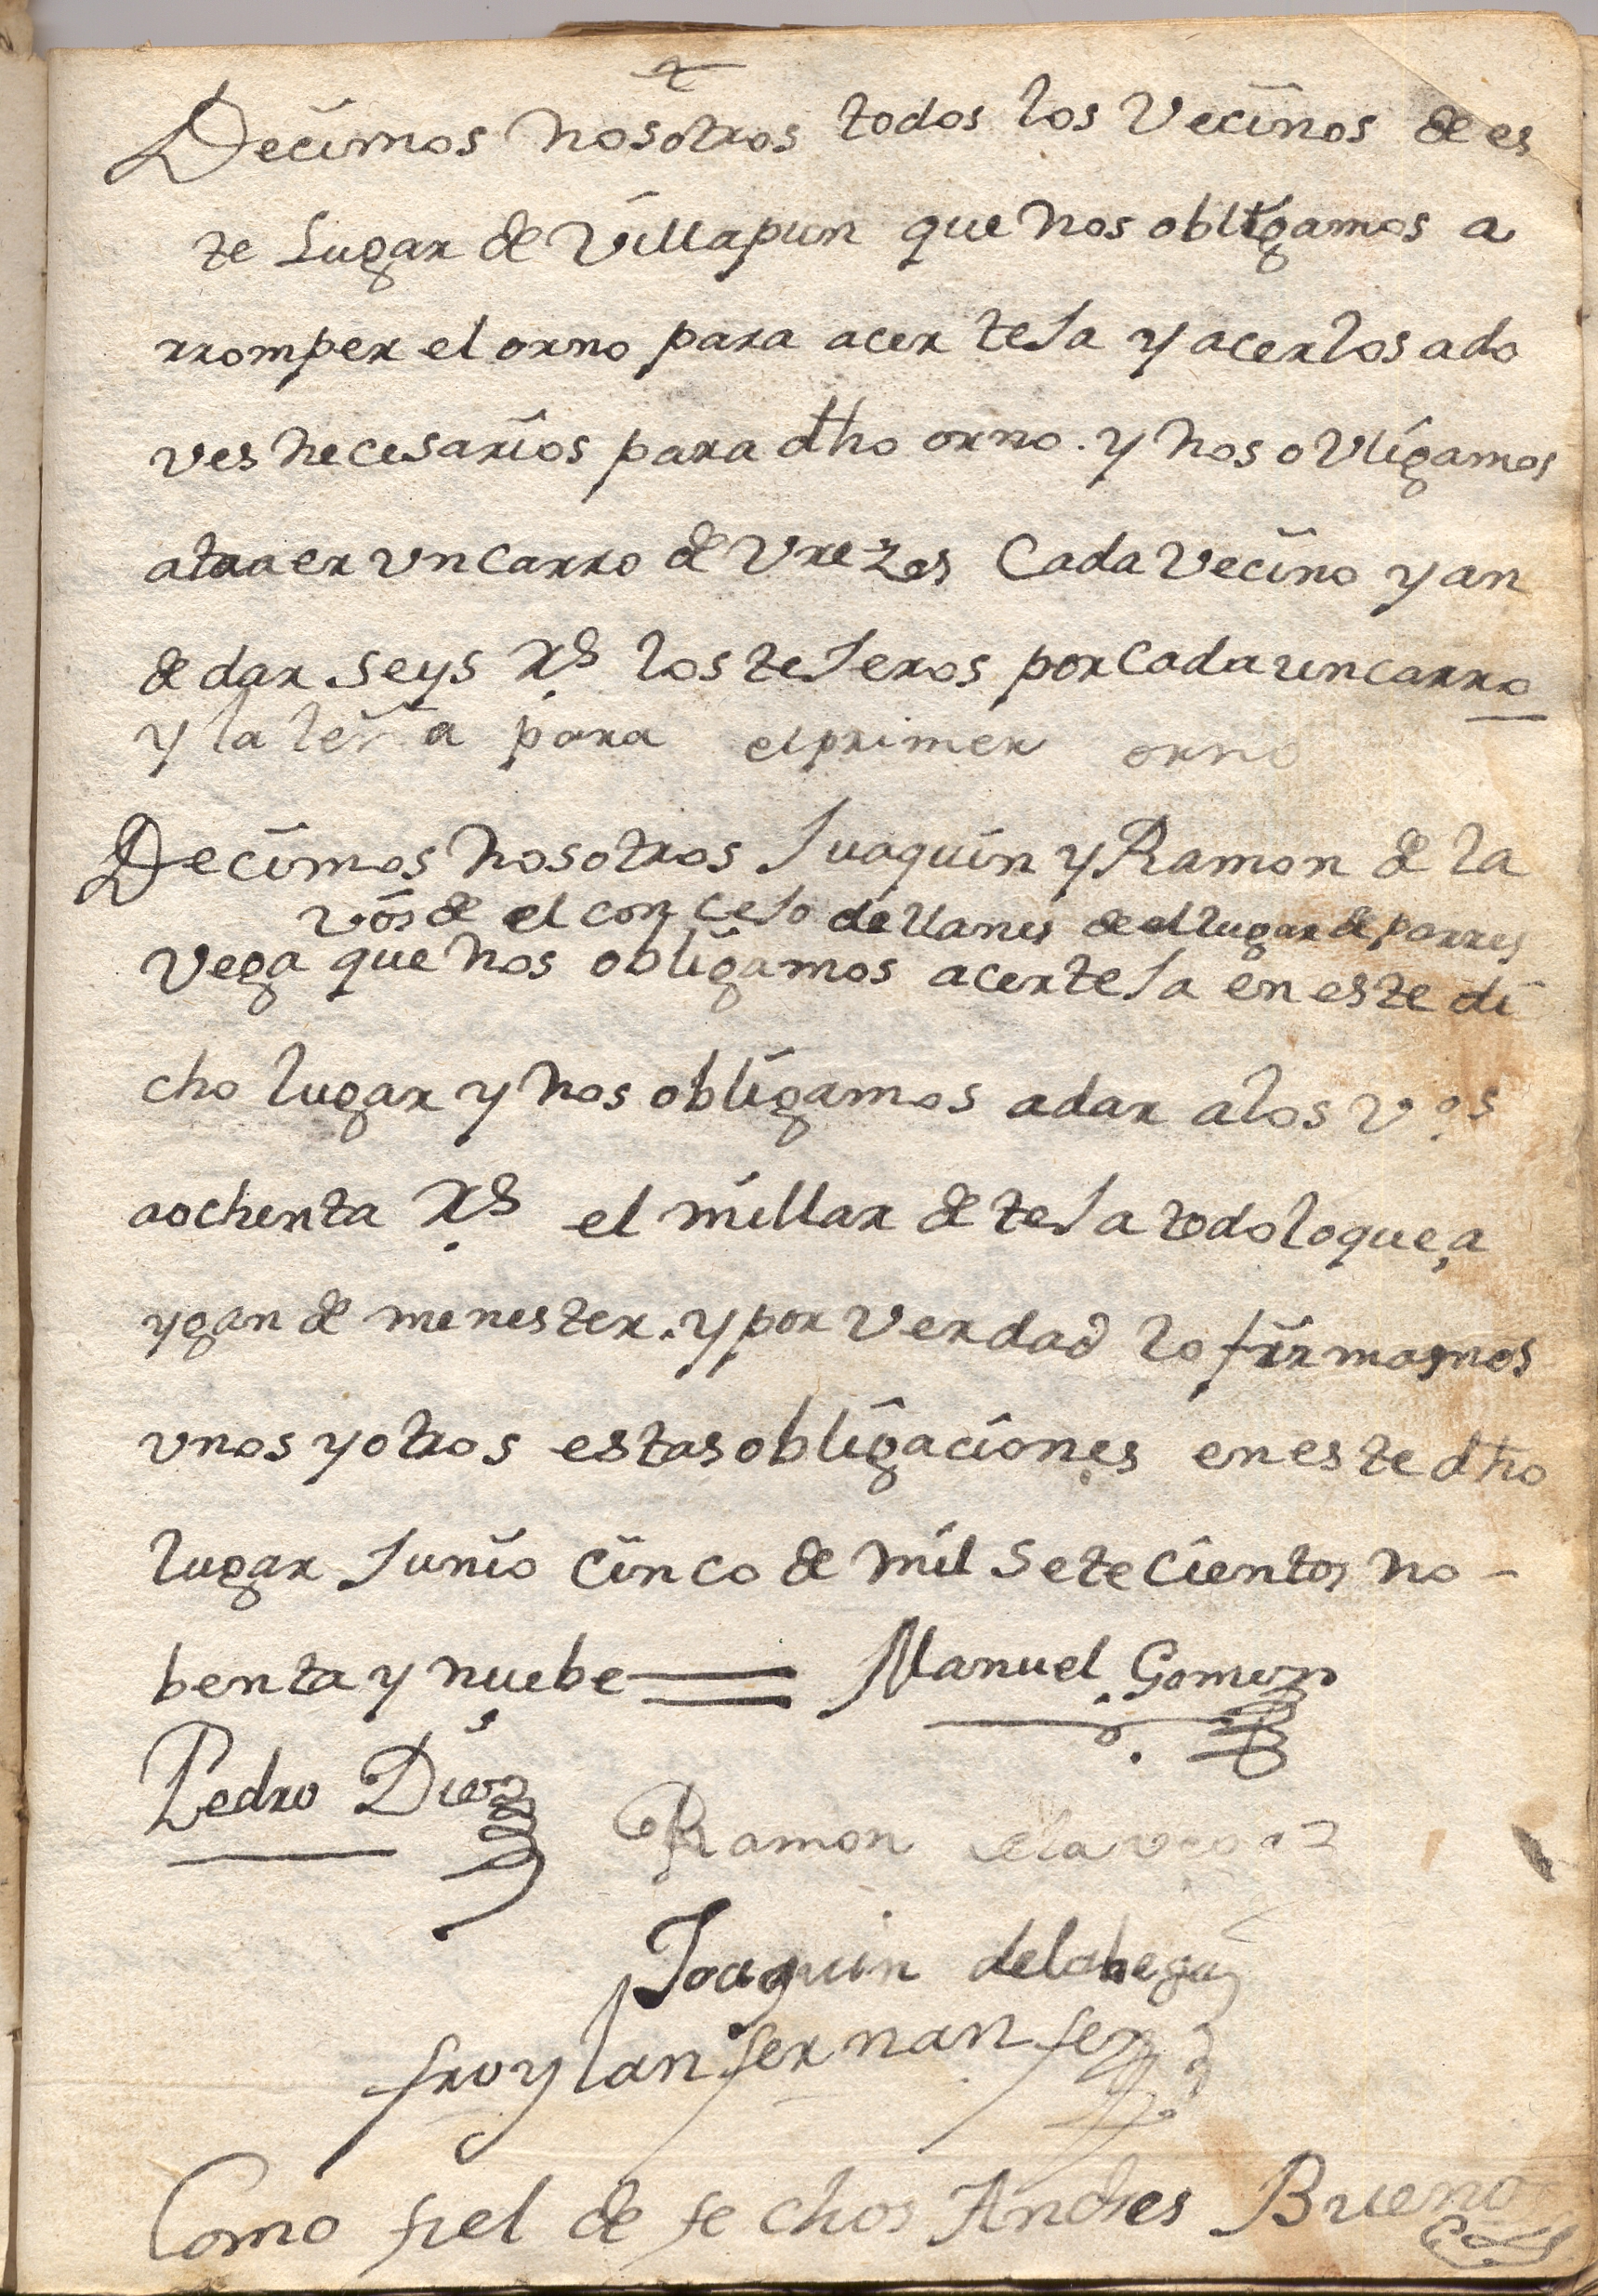 Decimos nosotros todos los Vecinos de es
te Lugar de Villapun que nos obligamos a
rromper el orno para acer teJa y acer los ado
ves necesarios para dho orno. y nos oVligamos
a traer vn carro de Vrezes Cada Vecino y an
de dar seys Rs los teJeros por Cada un carro
y la leña para el primer orno
Decimos nosotros Juaquin y Ramon de la
vos de el conceJo de llanes de el lugar de porres
Vega que nos obligamos acer teJa en este di
cho lugar y nos obligamos a dar a los vos
a ochenta Rs el millar de teJa todo lo que a
ygan de menester. y por verdad lo firmamos
vnos y otros estas obligaciones en este dho
lugar Junio cinco de mil setecientos no-
benta y nuebe = Manuel Gomez
Pedro Diez
Ramon dela vega
Joaquin delabega
froylan fernan fez
Como fiel de fechos Andres Bueno